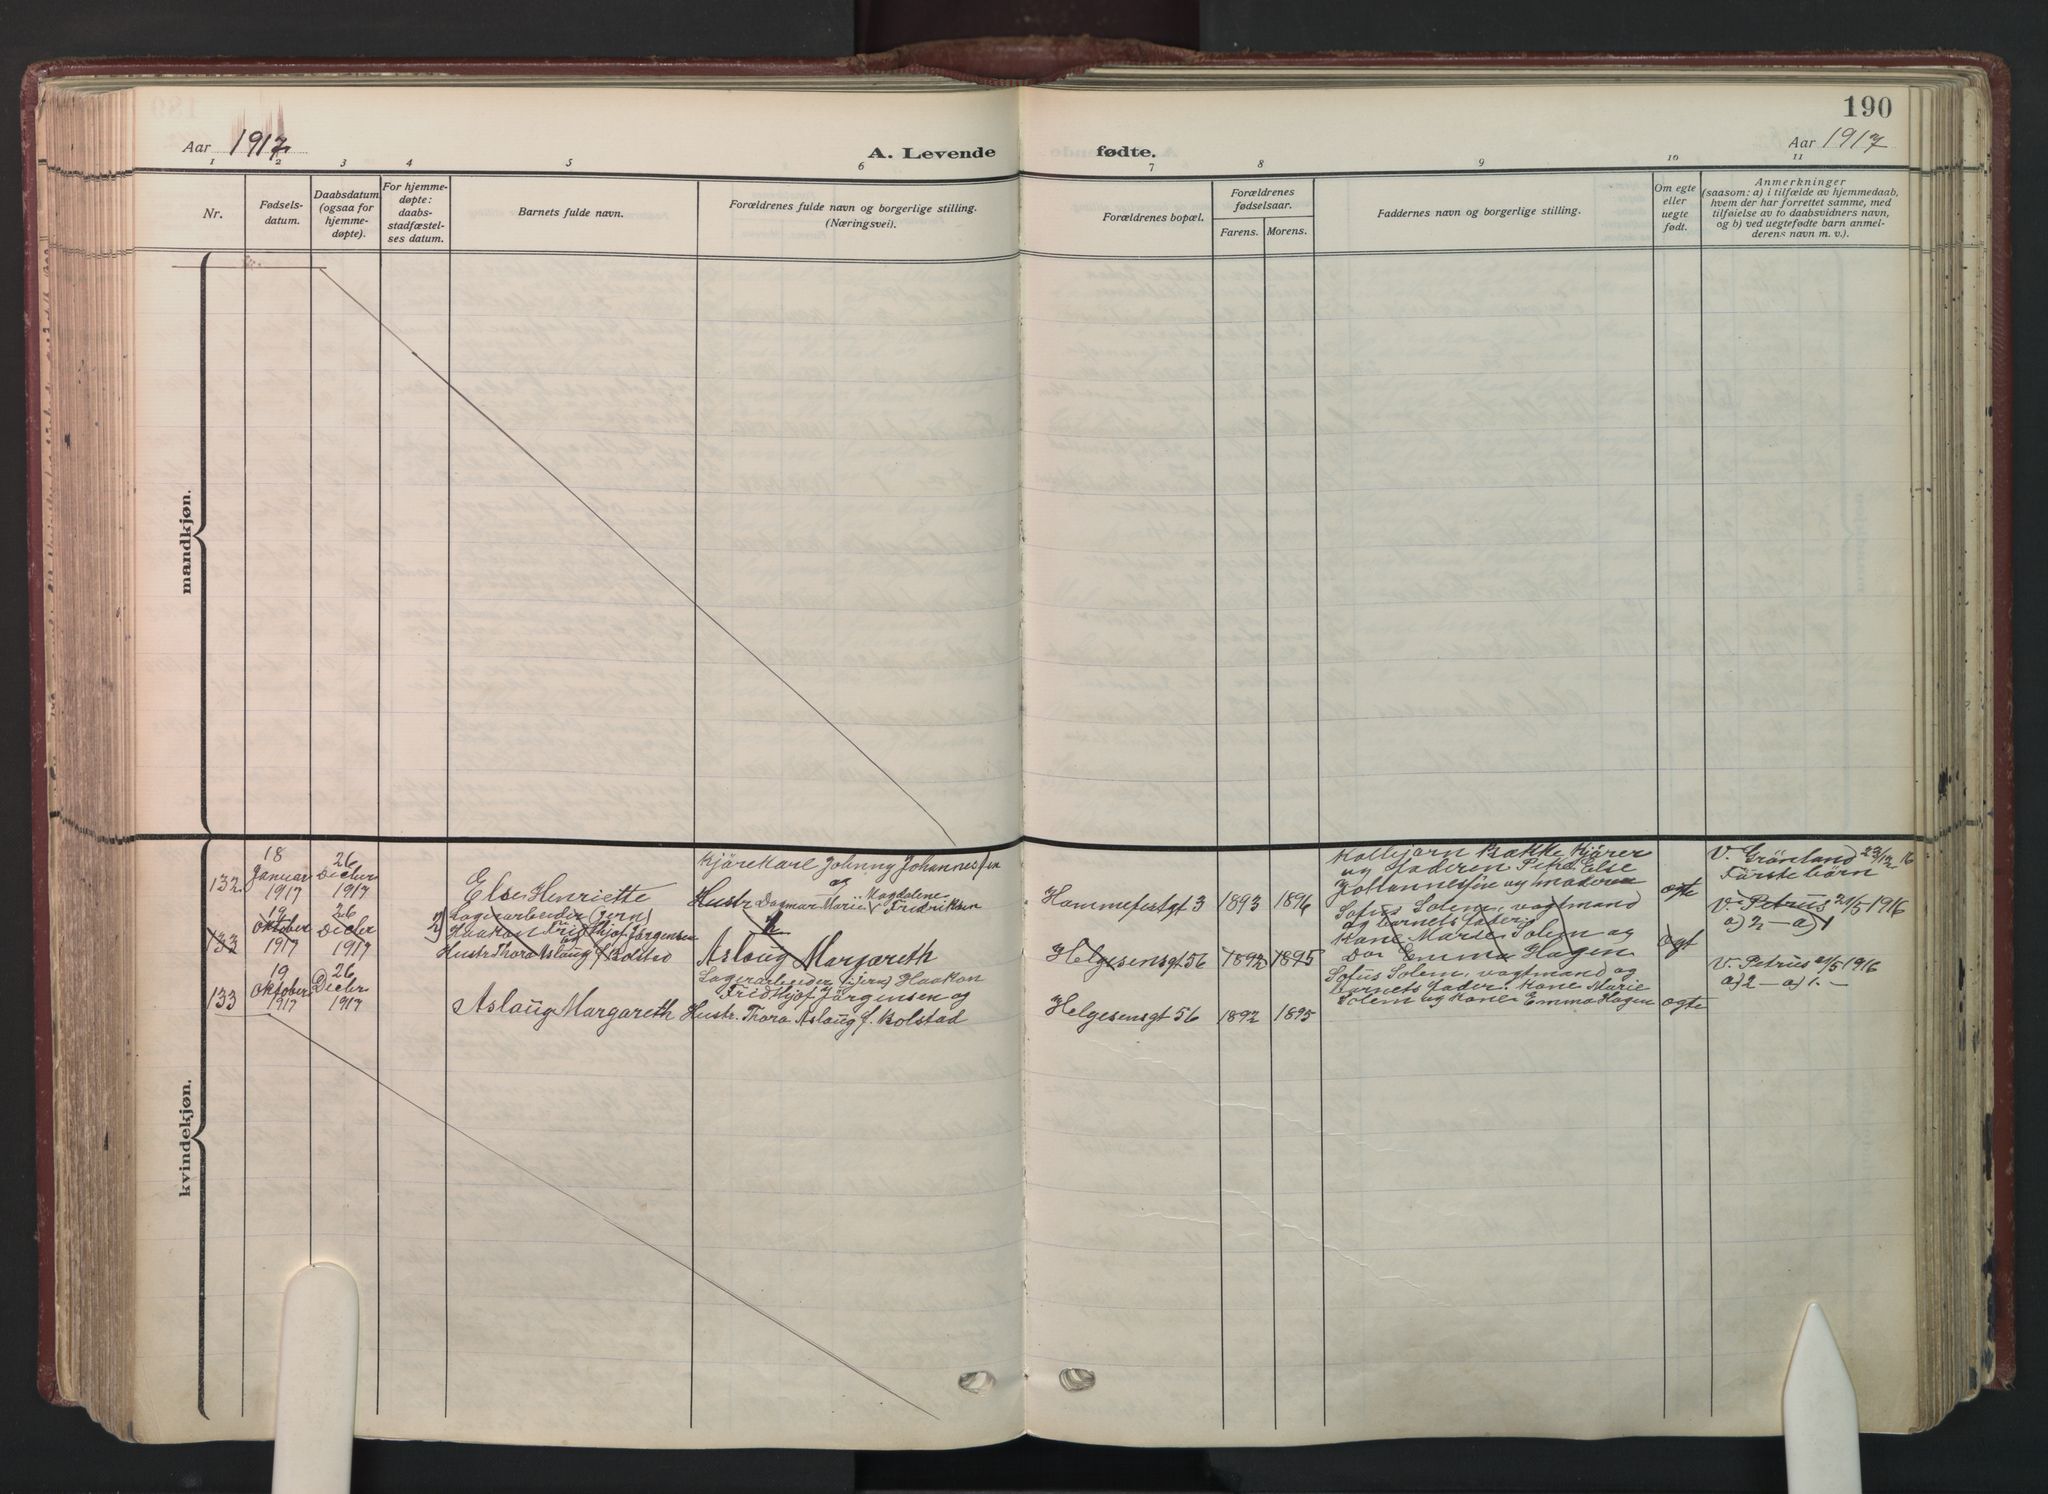 190
Aar 1917.
A. Levende fødte.
Aar 1917
1 2 3 4 5 6 7 8 9 10 11
Nr.
Fødsels-
datum.
Daabsdatum
(ogsaa for
hjemme-
døpte).
For hjemme-
døpte:
daabs-
stadfæstel-
ses datum.
Barnets fulde navn.
Forældrenes fulde navn og borgerlige stilling.
(Næringsvei).
Forældrenes bopæl.
Forældrenes
fødselsaar.
Farens. Morens.
Faddernes navn og borgerlige stilling.
Om egte
eller
uegte
født.
Anmerkninger
(saasom: a) i tilfælde av hjemmedaab,
hvem der har forrettet samme, med
tilføielse av to daabsvidners navn,
og b) ved uegtefødte barn anmel-
derens navn m. v.).
mandkjøn.
kvindekjøn.
132
18
Januar
1917
26
Decber
1917
Else Henriette
Kjörekarl Johnny Johannessen
og
Hustr Dagmar Marie Magdalene Fredriksen
Hammefestgt 3
1893
1896
Kolbjørn Bække Kjører
og Faderen
Else
Johannessen og moderen
egte
V. Grönland 23/12 16
Förstebörn
133
19
Oktober
1917
26
Decber
1917
2) Lagerarbeider (jern)
Haakon Fridthjof Jörgensen
og
Hustr Thora Aslaug f. Kolstad
Aslaug Margareth
Helgesensgt 56
1892
1895
Sofus Solem, vagtmand
og barnets fader:
Kone Marie Solem og
Do Emma Hagen
egt
V. Petrus 21/5 1916
a) 2 – a) 1
133
19
Oktober
1917
26
Decber
1917
Aslaug Margareth
Lagerarbeider (jern) Haakon
Fredthjof Jörgensen og
Hustr. Thora Aslaug f. Kolstad
Helgesensgt 56
1892
1895
Sofus Solem, vagtmand og
barnets fader. Kone Marie
Solem og Kone Emma Hagen
egte
V. Petrus 21/5 1916
a) 2 – a) 1. –